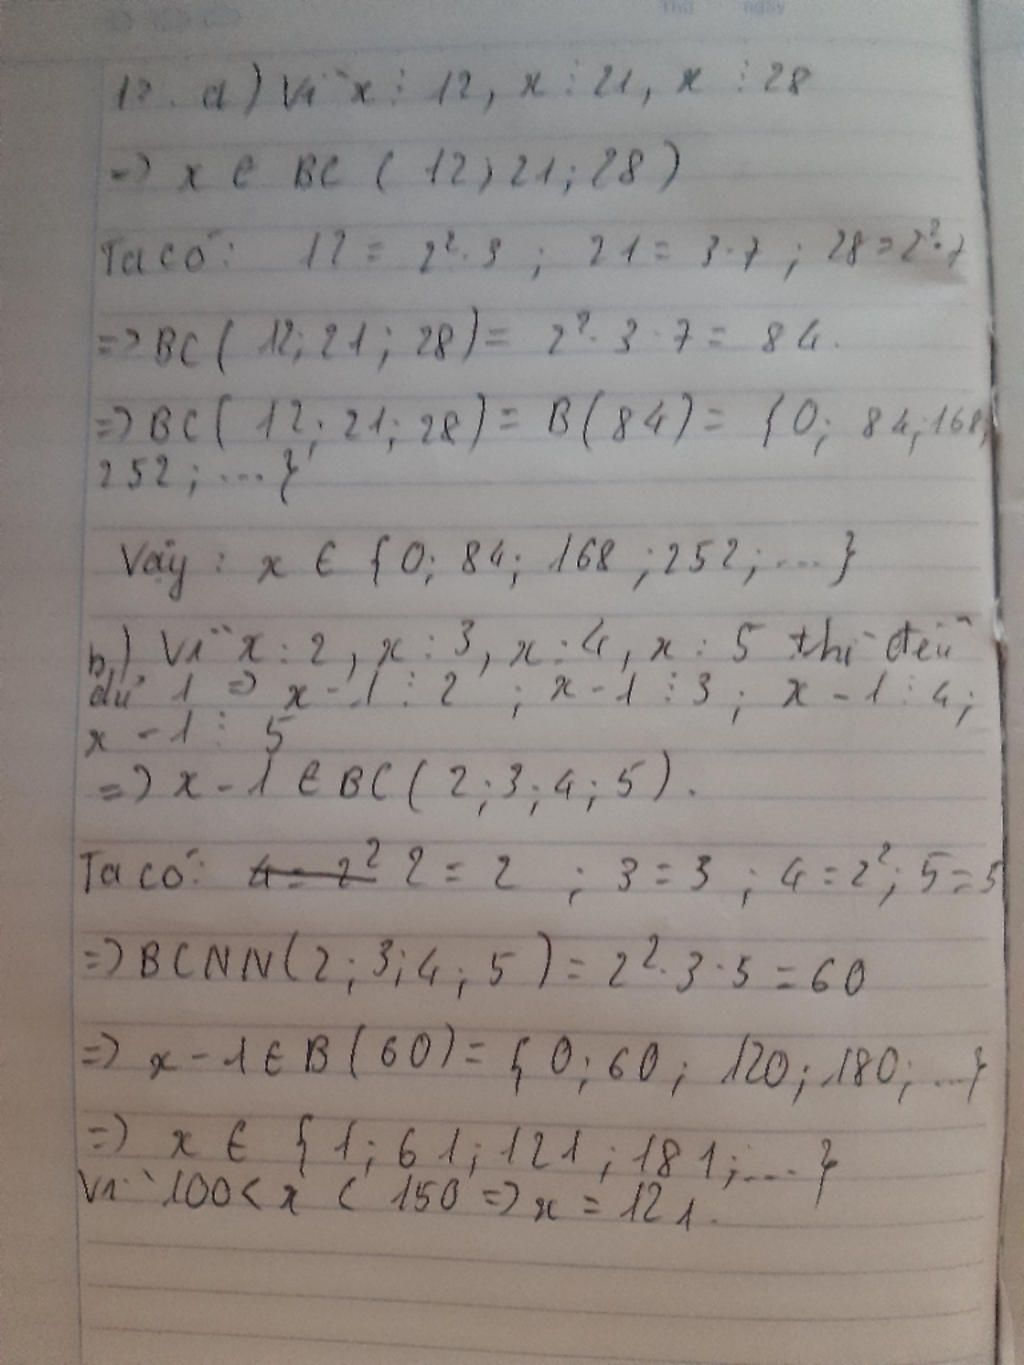 Thứ ngày
12. a) Vì x ⋮ 12, x ⋮ 21, x ⋮ 28
=> x ∈ BC ( 12; 21; 28 )
Ta có: 12 = 2². 3 ; 21 = 3 . 7 ; 28 = 2². 7
=> BC ( 12; 21 ; 28 ) = 2² . 3 . 7 = 84.
=> BC ( 12; 21; 28 ) = B ( 84 ) = { 0; 84; 168;
252 ; ... }
Vậy : x ∈ { 0; 84; 168 ; 252; ... }
b,) Vì x : 2, x : 3, x : 4, x : 5 thì đều
dư 1 => x - 1 ⋮ 2 ; x - 1 ⋮ 3 ; x - 1 ⋮ 4;
x - 1 ⋮ 5
=> x - 1 ∈ BC ( 2 ; 3 ; 4 ; 5 ) .
Ta có: 4 = 2² 2 = 2 ; 3 = 3 ; 4 = 2² ; 5 = 5
=> BCNN ( 2 ; 3 ; 4 ; 5 ) = 2² . 3 . 5 = 60
=> x - 1 ∈ B ( 60 ) = { 0 ; 60 ; 120 ; 180 ; ... }
=> x ∈ { 1 ; 61 ; 121 ; 181 ; ... }
Vì 100 < x < 150 => x = 121.